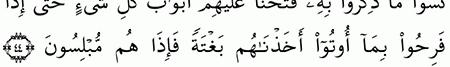 نَسُوا۟ مَا ذُكِّرُوا۟ بِهِۦ فَتَحْنَا عَلَيْهِمْ أَبْوَٰبَ كُلِّ شَىْءٍ حَتَّىٰٓ إِذَا
فَرِحُوا۟ بِمَآ أُوتُوٓا۟ أَخَذْنَٰهُم بَغْتَةً فَإِذَا هُم مُّبْلِسُونَ ٤٤